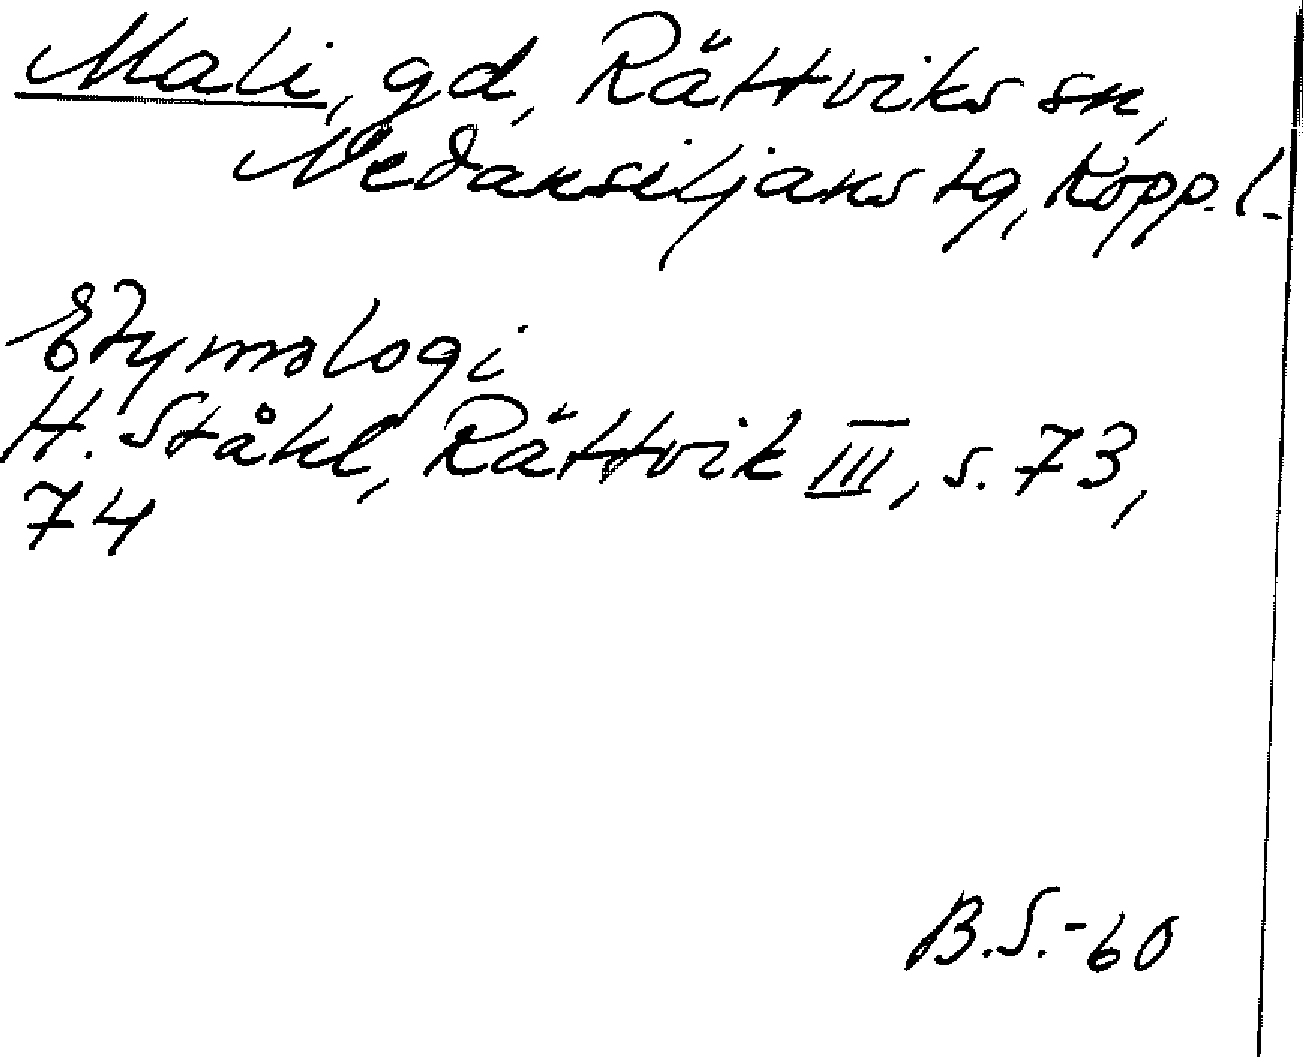 Mali, gd, Rättviks sn,
Nedansiljans tg, Kopp. l.
Etymologi
H. Ståhl, Rättvik III, s. 73,
74
B.S.-60